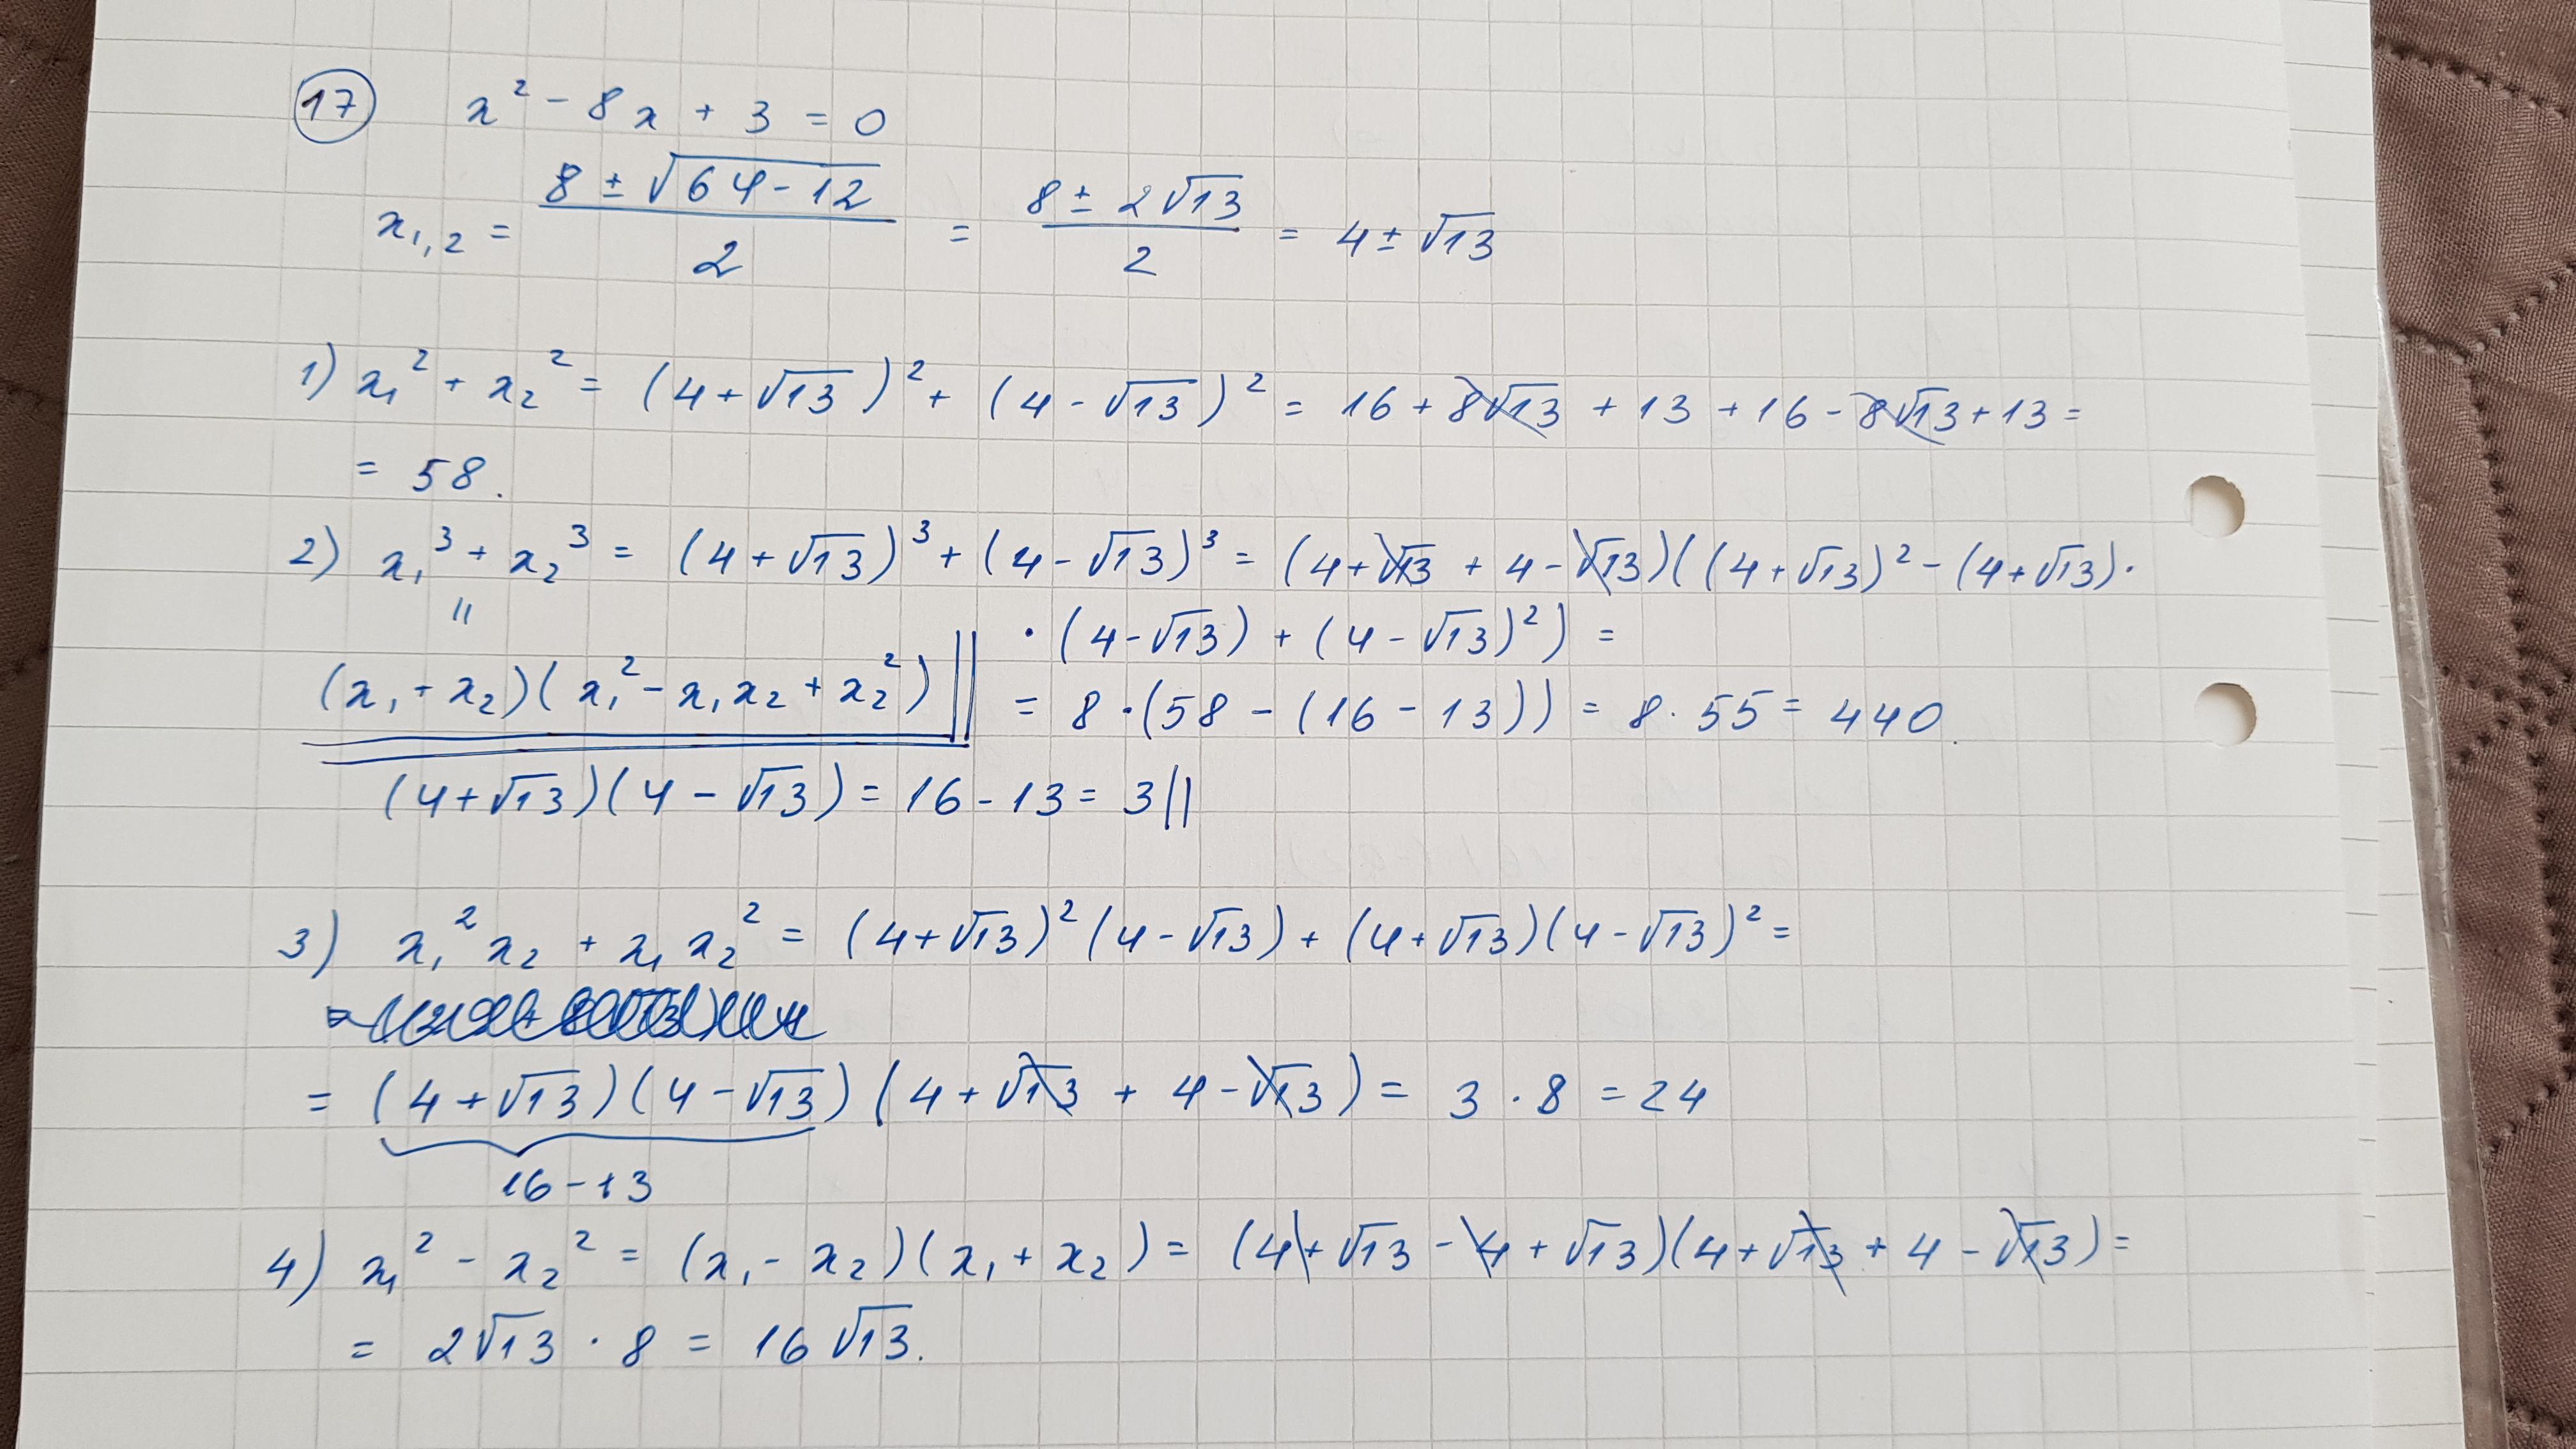 17 x² - 8x + 3 = 0
x₁,₂ = (8 ± √(64-12))/2 = (8 ± 2√13)/2 = 4 ± √13
1) x₁² + x₂² = (4 + √13)² + (4 - √13)² = 16 + 8√13 + 13 + 16 - 8√13 + 13 =
= 58.
2) x₁³ + x₂³ = (4 + √13)³ + (4 - √13)³ = (4 + √13 + 4 - √13)((4 + √13)² - (4 + √13)·
|| · (4 - √13) + (4 - √13)²) =
(x₁ + x₂)(x₁² - x₁x₂ + x₂²) || = 8·(58 - (16 - 13)) = 8·55 = 440.
(4 + √13)(4 - √13) = 16 - 13 = 3 ||
3) x₁²x₂ + x₁x₂² = (4 + √13)²(4 - √13) + (4 + √13)(4 - √13)² =
= (4 + √13)(4 - √13)(4 + √13 + 4 - √13) = 3 · 8 = 24
16 - 13
4) x₁² - x₂² = (x₁ - x₂)(x₁ + x₂) = (4 + √13 - 4 + √13)(4 + √13 + 4 - √13) =
= 2√13 · 8 = 16√13.